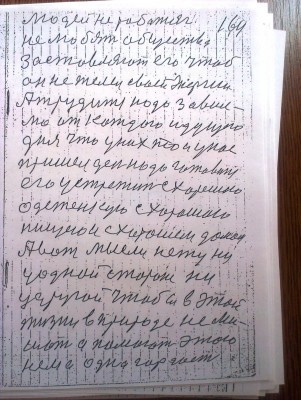 людей не работяг 164
не любят общество
заставляют его чтоб
он не жалел своей энергии
А трудится надо завис-
мо от каждого идущего
дня что у них то и у нас
пришел ден надо готовится
его устретит с хорошого
одеженкую с хорошого
пищею и хорошем домом
А вот мысли нету ни
у одной стороне ни
у другой чтоб в этой
жизни в природе не ме-
шат а помогат этого
нема одна гордост